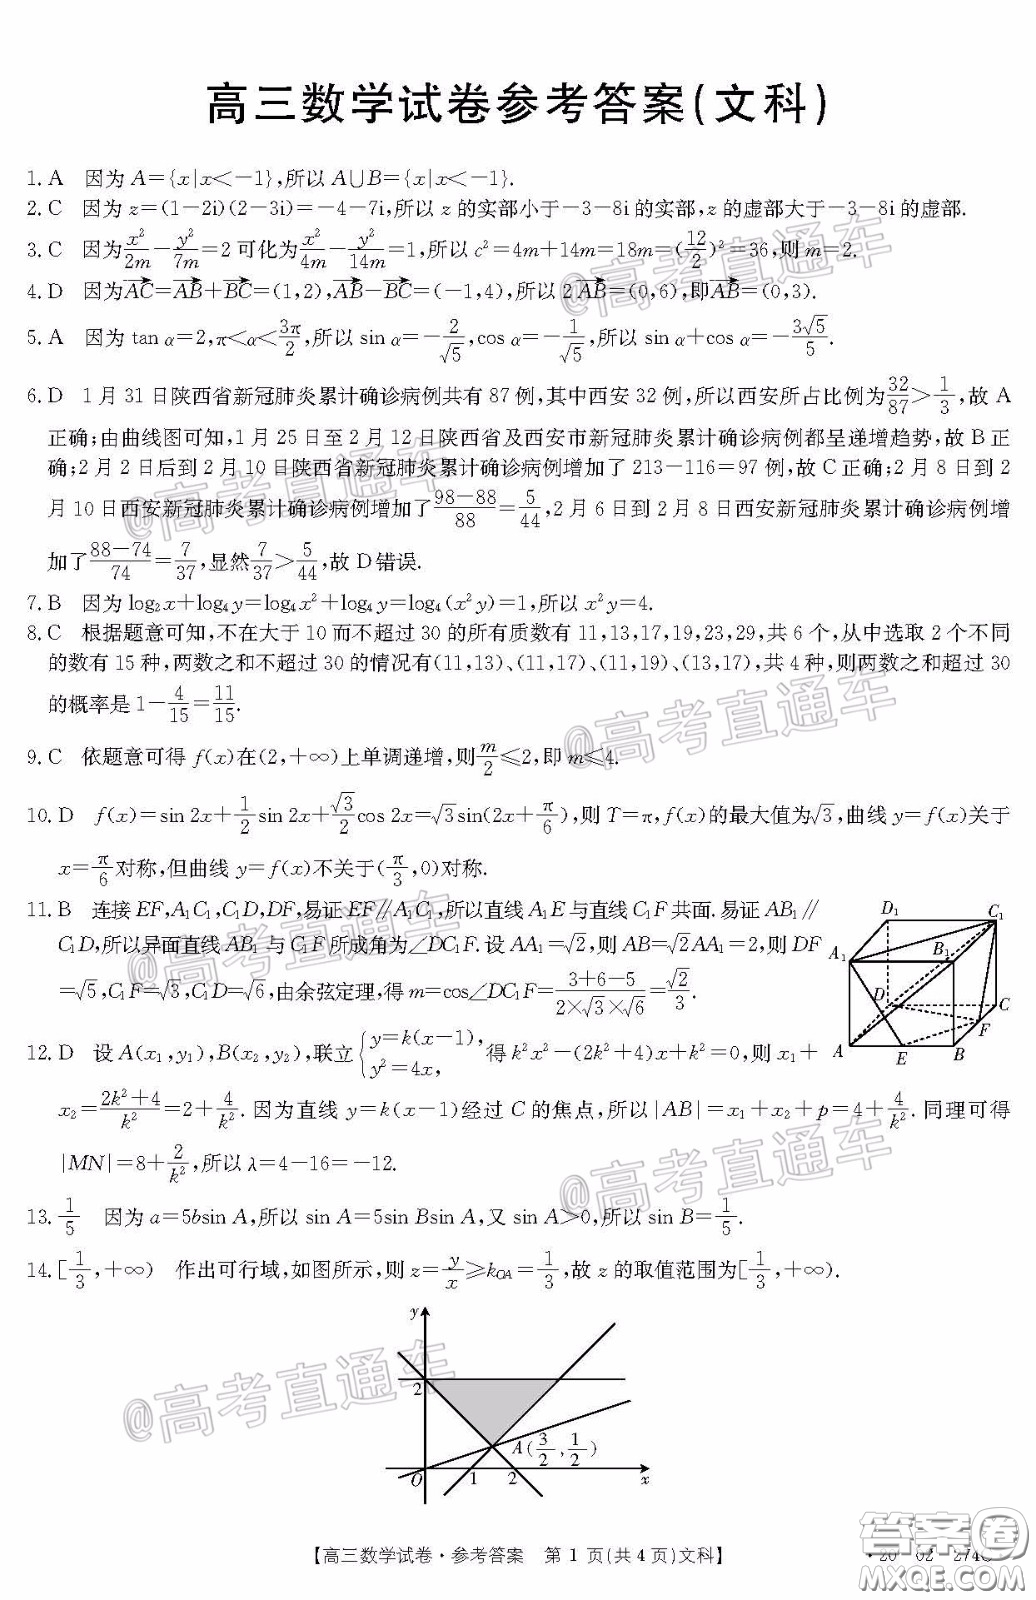 高三数学试卷参考答案(文科)
1. A 因为 A={x|x<-1},所以 A∪B={x|x<-1}.
2. C 因为 z=(1-2i)(2-3i)=-4-7i,所以 z 的实部小于-3-8i 的实部,z 的虚部大于-3-8i 的虚部.
3. C 因为x²/2m-y²/7m=2 可化为x²/4m-y²/14m=1,所以 c²=4m+14m=18m=(12/2)²=36,则 m=2.
4. D 因为AC→=AB→+BC→=(1,2),AB→-BC→=(-1,4),所以 2AB→=(0,6),即AB→=(0,3).
5. A 因为 tan α=2,π<α<3π/2,所以 sin α=-2/√5,cos α=-1/√5,所以 sin α+cos α=-3√5/5.
6. D 1 月 31 日陕西省新冠肺炎累计确诊病例共有 87 例,其中西安 32 例,所以西安所占比例为32/87>1/3,故 A
正确;由曲线图可知,1 月 25 日至 2 月 12 日陕西省及西安市新冠肺炎累计确诊病例都呈递增趋势,故 B 正
确;2 月 2 日后到 2 月 10 日陕西省新冠肺炎累计确诊病例增加了 213-116=97 例,故 C 正确;2 月 8 日到 2
月 10 日西安新冠肺炎累计确诊病例增加了98-88/88=5/44,2 月 6 日到 2 月 8 日西安新冠肺炎累计确诊病例增
加了88-74/74=7/37,显然7/37>5/44,故 D 错误.
7. B 因为 log₂x+log₄y=log₄x²+log₄y=log₄(x²y)=1,所以 x²y=4.
8. C 根据题意可知,不在大于 10 而不超过 30 的所有质数有 11,13,17,19,23,29,共 6 个,从中选取 2 个不同
的数有 15 种,两数之和不超过 30 的情况有(11,13)、(11,17)、(11,19)、(13,17),共 4 种,则两数之和超过 30
的概率是 1-4/15=11/15.
9. C 依题意可得 f(x)在(2,+∞)上单调递增,则m/2≤2,即 m≤4.
10. D f(x)=sin 2x+1/2 sin 2x+√3/2 cos 2x=√3sin(2x+π/6),则 T=π,f(x)的最大值为√3,曲线 y=f(x)关于
x=π/6对称,但曲线 y=f(x)不关于(π/3,0)对称.
11. B 连接 EF,A₁C₁,C₁D,DF,易证 EF∥A₁C₁,所以直线 A₁E 与直线 C₁F 共面.易证 AB₁∥
C₁D,所以异面直线 AB₁ 与 C₁F 所成角为∠DC₁F.设 AA₁=√2,则 AB=√2AA₁=2,则 DF
=√5,C₁F=√3,C₁D=√6,由余弦定理,得 m=cos∠DC₁F=3+6-5/2×√3×√6=√2/3.
D₁
C₁
A₁
B₁
D
C
F
A
E
B
12. D 设 A(x₁,y₁),B(x₂,y₂),联立{y=k(x-1), y²=4x, 得 k²x²-(2k²+4)x+k²=0,则 x₁+
x₂=2k²+4/k²=2+4/k². 因为直线 y=k(x-1)经过 C 的焦点,所以|AB|=x₁+x₂+p=4+4/k². 同理可得
|MN|=8+2/k²,所以 λ=4-16=-12.
13. 1/5 因为 a=5bsin A,所以 sin A=5sin Bsin A,又 sin A>0,所以 sin B=1/5.
14. [1/3,+∞) 作出可行域,如图所示,则 z=y/x≥k_OA=1/3,故 z 的取值范围为[1/3,+∞).
y
2
A(3/2,1/2)
O
1
2
x
【高三数学试卷·参考答案 第 1 页(共 4 页)文科】
@高考直通车
@高考直通车
@高考直通车
@高考直通车
@高考直通车
@高考直通车
答案卷
MXQE.COM